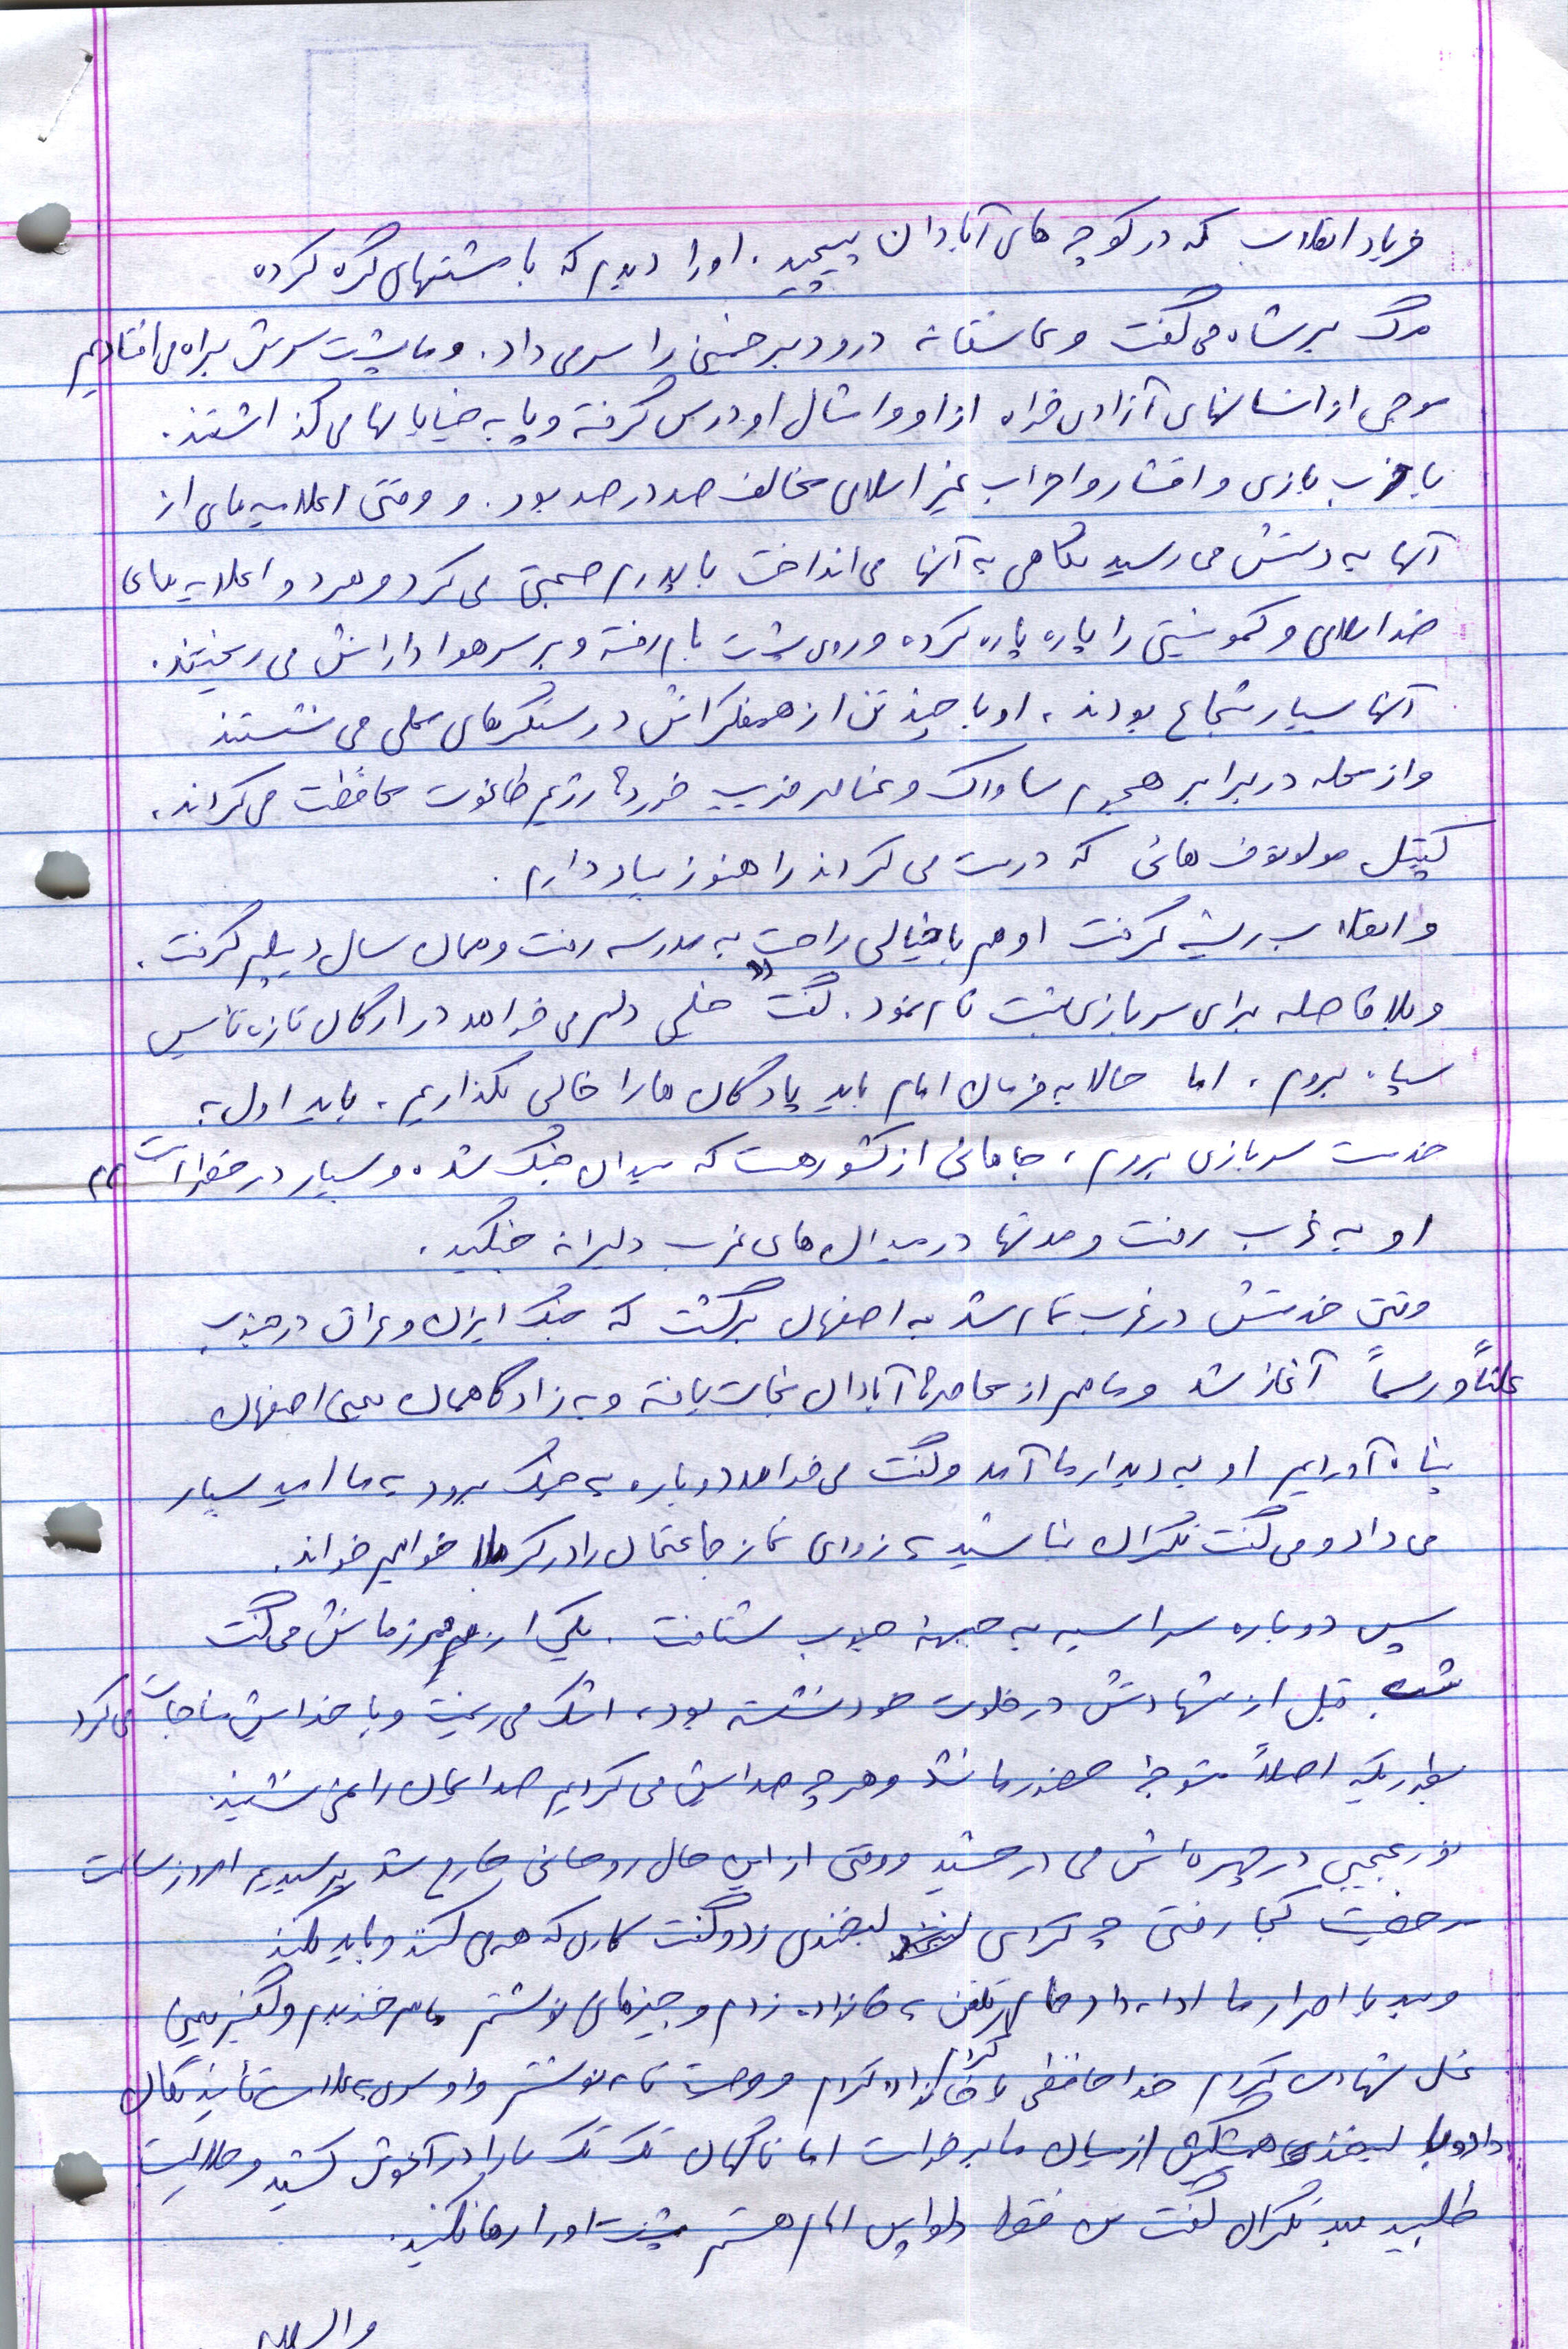 فریاد انقلاب که در کوچه های آبادان پیچید. او را دیدم که با مشتهای گره کرده
مرگ بر شاه می گفت و عاشقانه درود بر خمینی را سر می داد. و ما پشت سرش براه می افتادیم
موجی از انسانهای آزادی خواه از او و امثال او درس گرفته و پا به خیابانها می گذاشتند.
با حزب بازی و اقشار و احزاب غیر اسلامی مخالف صد در صد بود. و وقتی اعلامیه های از
آنها به دستش می رسید نگاهی به آنها می انداخت با پدرم صحبتی می کرد و هر دو اعلامیه های
ضد اسلامی و کمونیستی را پاره پاره کرده و روی پشت بام رفته و بر سر هوادارانش می ریختند.
آنها بسیار شجاع بودند، او با چند تن از همفکرانش در سنگرهای محلی می نشستند
و از محله در برابر هجوم ساواک و عناصر فریب خوردهٔ رژیم طاغوت محافظت می کردند،
کپتل مولوتوف هائی که درست می کردند را هنوز بیاد دارم.
و انقلاب ریشه گرفت او هم با خیالی راحت به مدرسه رفت و همان سال دیپلم گرفت.
و بلافاصله برای سربازی ثبت نام نمود. گفت " خیلی دلم می خواهد در ارگان تازه تاسیس
سپاه بروم، اما حالا به فرمان امام باید پادگان ها را خالی نگذاریم، باید اول به
خدمت سربازی بروم، جاهائی از کشور هست که میدان جنگ شده و بسیار در خطر است"
او به غرب رفت و مدتها در میدان های غرب دلیرانه جنگید.
وقتی خدمتش در غرب تمام شد به اصفهان برگشت که جنگ ایران و عراق در جنوب
علناً و رسماً آغاز شد و ما هم از محاصرهٔ آبادان نجات یافته و به زادگاهمان یعنی اصفهان
پناه آوردیم او به دیدار ما آمد و گفت می خواهد دوباره به جنگ برود به ما امید بسیار
می داد و می گفت نگران نباشید به زودی نماز جماعتمان را در کربلا خواهیم خواند.
سپس دوباره سراسیمه به جبههٔ جنوب شتافت. یکی از همرزمانش می گفت
شب قبل از شهادتش در خلوت خود نشسته بود، اشک می ریخت و با خدایش مناجات می کرد
بطوریکه اصلاً متوجهٔ حضور ما نشد و هر چه صدایش می کردیم صدایمان را نمی شنید.
نور عجیبی در چهره اش می درخشید و وقتی از این حال روحانی خارج شد پرسیدیم امروز ساعت
مرخصیت کجا رفتی چه کردی لبخندی زد و گفت کاری که همه می کنند و باید بکنند
و بعد با اصرار ما ادامه داد حمام تلفن به خانواده زدم و چیزهای نوشتم ما هم خندیدیم و گفتیم یعنی
غسل شهادت کردم خداحافظی با خانواده کردم و وصیت نامه نوشتم و او سری به علامت تأیید تکان
داد و با لبخند همیشگی از میان ما برخاست اما ناگهان تک تک ما را در آغوش کشید و حلالیت
طلبید بعد نگران گفت من فقط دلواپس امام هستم پشت او را رها نکنید.
والسلام